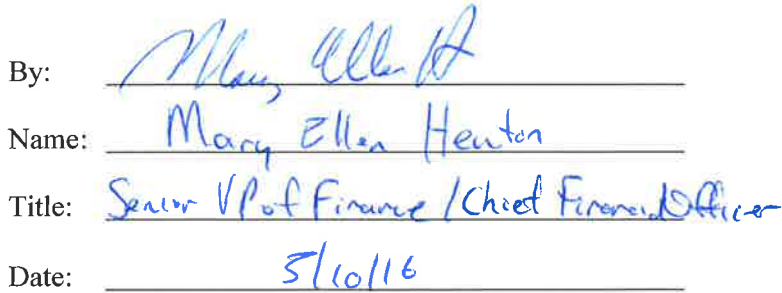 By: Mary Ellen H
Name: Mary Ellen Henton
Title: Senior VP of Finance / Chief Financial Officer
Date: 5/10/16